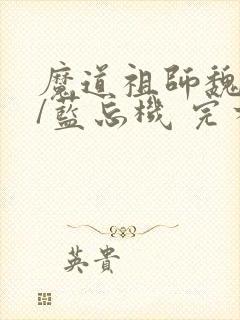 魔道祖師魏
/藍忘機 完
英貴